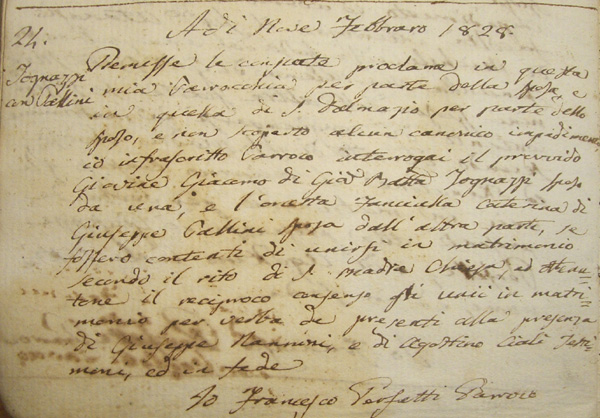 Adi Nove Febbraro 1828.
24.
Tognazzi
con Pallini
Premesse le consuete proclame in questa
mia Parrocchia per parte della sposa, e
in quella di S. Dalmazio per parte dello
sposo, e non scoperto alcun canonico impedimento,
io infrascritto Parroco interrogai il provvido
Giovine Giacomo di Gio Batta Tognazzi sposo
da una, e l'onesta Fanciulla Caterina di
Giuseppe Pallini sposa dall'altra parte, se
fossero contenti di unirsi in matrimonio
secondo il rito di S. Madre Chiesa, ed ottenu-
tone il reciproco consenso gli unii in matri-
monio per verba de presenti alla presenza
di Giuseppe Nannini, e di Agostino Ciali Testi-
moni, ed in fede
Io Francesco Perfetti Parroco